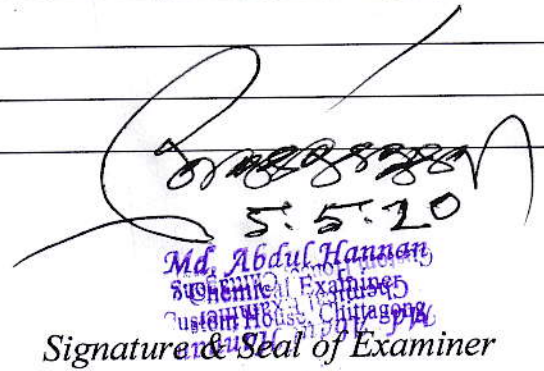 5.5.20
Md. Abdul Hannan
Chemical Examiner
Custom House, Chittagong
Signature & Seal of Examiner